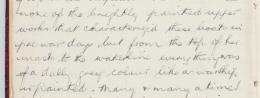 none of the brightly painted upper
works that characterized these boats in
pre war days but from the top of her
mast to the waterline everything was
of a dull, grey colour like a warship
is painted. Many & many a time I